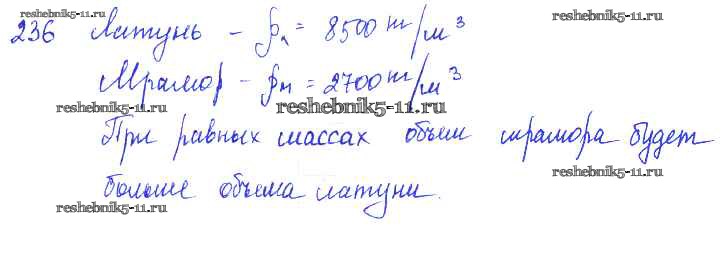 reshebnik5-11.ru reshebnik5-11.ru
236 Латунь - ρл = 8500 кг/м³
Мрамор - ρм = 2700 кг/м³
reshebnik5-11.ru reshebnik5-11.ru
При равных массах объем мрамора будет
reshebnik5-11.ru
больше объема латуни.
reshebnik5-11.ru